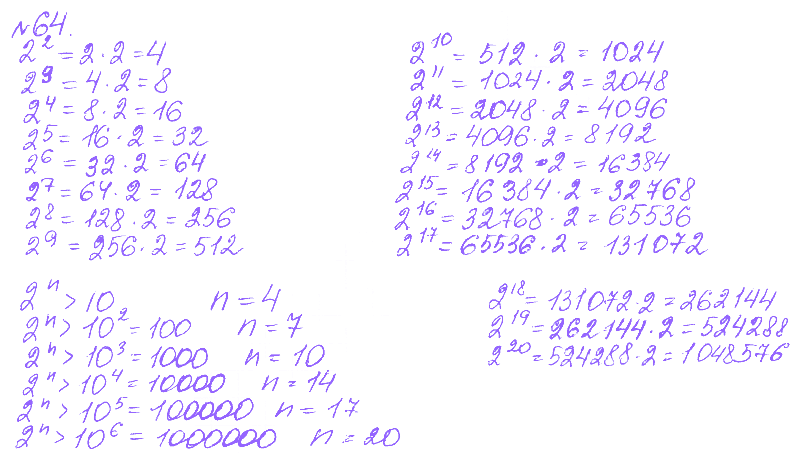 №64.
2² = 2 · 2 = 4
2³ = 4 · 2 = 8
2⁴ = 8 · 2 = 16
2⁵ = 16 · 2 = 32
2⁶ = 32 · 2 = 64
2⁷ = 64 · 2 = 128
2⁸ = 128 · 2 = 256
2⁹ = 256 · 2 = 512
2¹⁰ = 512 · 2 = 1024
2¹¹ = 1024 · 2 = 2048
2¹² = 2048 · 2 = 4096
2¹³ = 4096 · 2 = 8192
2¹⁴ = 8192 · 2 = 16384
2¹⁵ = 16384 · 2 = 32768
2¹⁶ = 32768 · 2 = 65536
2¹⁷ = 65536 · 2 = 131072
2ⁿ > 10 n = 4
2ⁿ > 10² = 100 n = 7
2ⁿ > 10³ = 1000 n = 10
2ⁿ > 10⁴ = 10000 n = 14
2ⁿ > 10⁵ = 100000 n = 17
2ⁿ > 10⁶ = 1000000 n = 20
2¹⁸ = 131072 · 2 = 262144
2¹⁹ = 262144 · 2 = 524288
2²⁰ = 524288 · 2 = 1048576